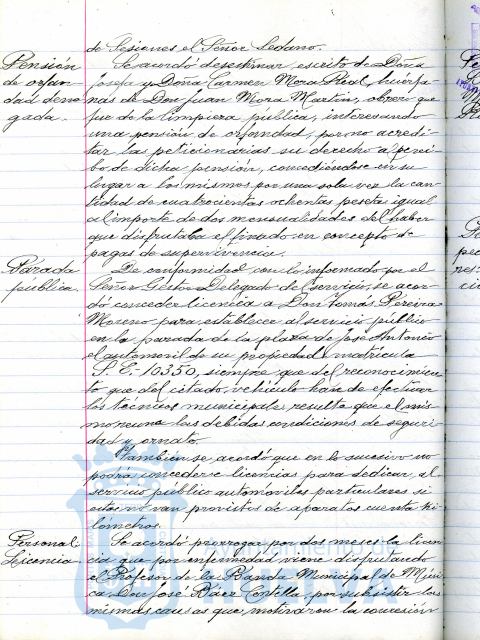 de Sesiones el Señor Ledano.
Pensión
de orfan-
dad dene-
gada.
Se acordó desestimar escrito de Doña
Josefa y Doña Carmen Mora Real, huérfa-
nas de Don Juan Mora Martín, obrero que
fue de la limpieza pública, interesando
una pensión de orfandad, por no acredi-
tar las peticionarias su derecho al perci-
bo de dicha pensión, concediéndose en su
lugar a los mismos por una sola vez la can-
tidad de cuatrocientas ochenta pesetas igual
al importe de dos mensualidades del haber
que disfrutaba el finado en concepto de
pagas de supervivencia.
Parada
pública.
De conformidad con lo informado por el
Señor Gestor Delegado del servicio, se acor-
dó conceder licencia a Don Tomás Pereira
Moreno para establecer al servicio público
en la parada de la plaza de José Antonio
el automóvil de su propiedad, matrícula
S.E.-10350, siempre que del reconocimien-
to que del citado vehículo han de efectuar
los técnicos municipales resulte que el mis-
mo reune las debidas condiciones de seguri-
dad y ornato.
También se acordó que en lo sucesivo no
podrá concederse licencias para dedicar al
servicio público automóviles particulares si
estos no van provistos de aparatos cuenta ki-
lómetros.
Personal.
Licencia.
Se acordó prorrogar por dos meses la licen-
cia que por enfermedad viene disfrutando
el Profesor de la Banda Municipal de Músi-
ca, Don José Báez Centella, por subsistir las
mismas causas que motivaron la concesión
Ayuntamiento de